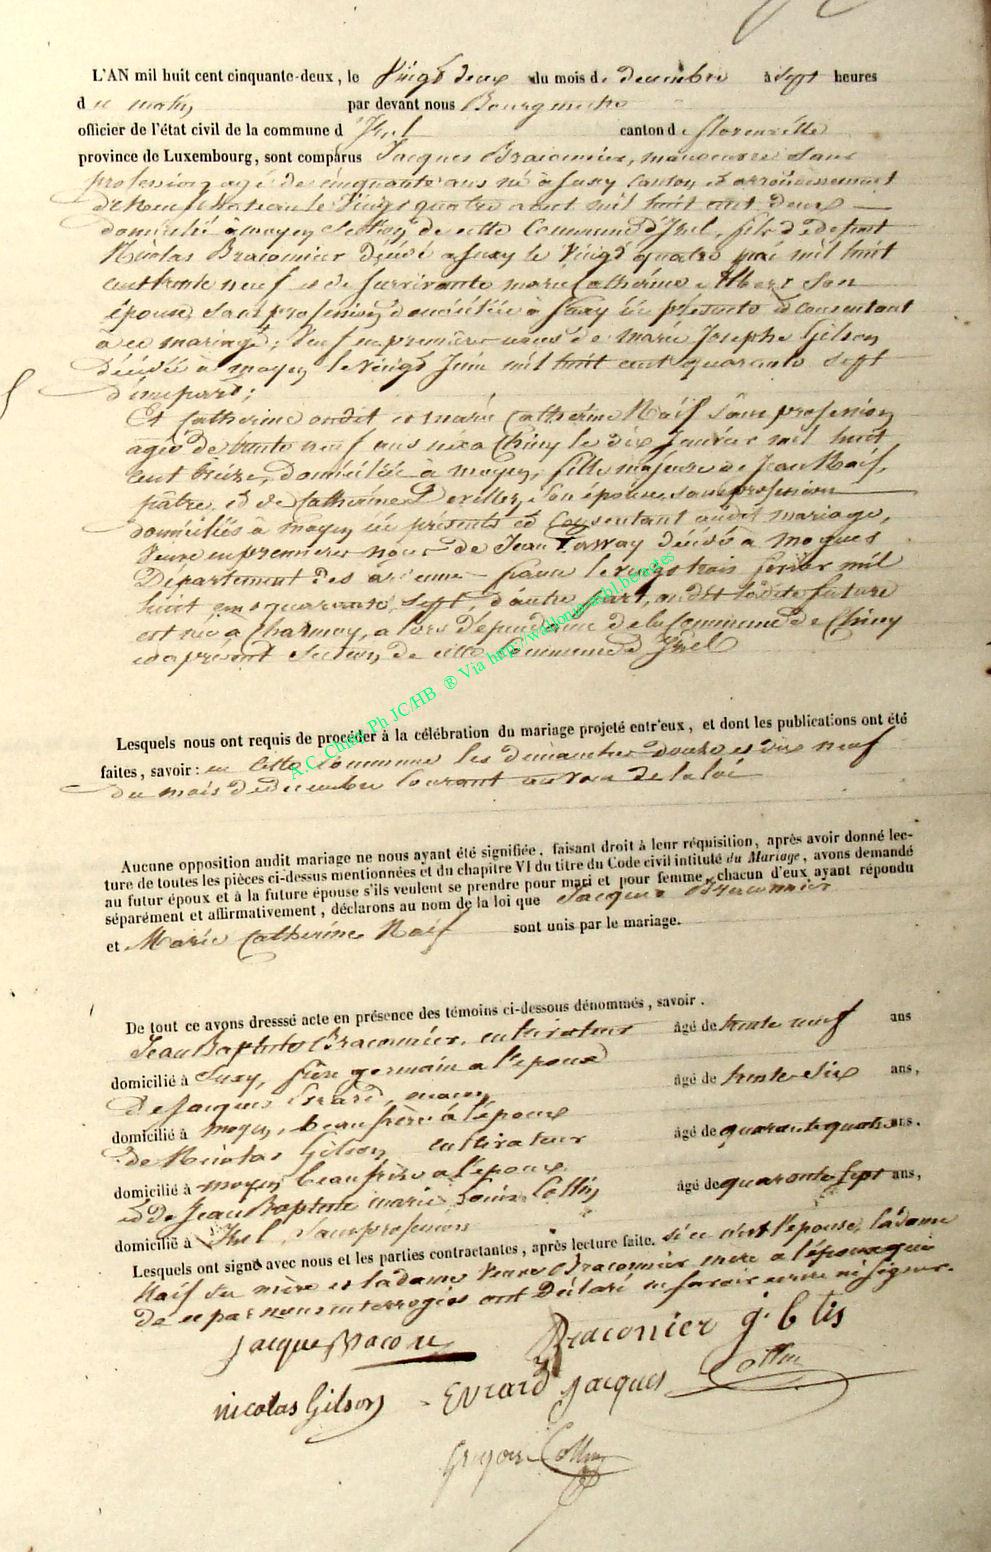 L'AN mil huit cent cinquante-deux, le vingt deux du mois de decembre à sept heures
du matin par devant nous Bourgmestre
officier de l'état civil de la commune d'Izel canton de florenville
province de Luxembourg, sont comparus Jacques Braconnier, manoeuvre sans
profession agé de cinquante ans né à Suxy canton et arrondissement
de Neufchateau le vingt quatre aout mil huit cent deux
domicilié à moyen Section de cette Commune d'Izel, fils de defunt
Nicolas Braconnier décédé à Suxy le vingt quatre mai mil huit
cent trente neuf et de survivante marie Catherine son
épouse, sans profession, domiciliée à Suxy ici présente et consentant
à ce mariage; veuf en premières noces de marie Josephe Gilson
décédée à moyen le vingt Juin mil huit cent quarante sept
d'une part;
Et Catherine ou dit et marie Catherine Naif sans profession
agée de trente neuf ans née à Chiny le dix Janvier mil huit
cent treize, domiciliée à moyen, fille majeure de Jean Naif,
pâtre et de Catherine son épouse, sans profession
domiciliés à moyen ici présents et consentant audit mariage,
veuve en premières noces de Jean décédé à mogues
Département des ardennes france le vingt trois février mil
huit cent quarante sept, d'autre part, ladite future
est née à Charmoy, alors dépendance de la Commune de Chiny
et à présent Section de cette Commune d'Izel
A.C. Chiny Ph JC/HB ® Via http://wallonia-asbl.be/actes
Lesquels nous ont requis de procéder à la célébration du mariage projeté entr'eux, et dont les publications ont été
faites, savoir: en cette Commune les dimanches douze et dix neuf
du mois de decembre courant au vœu de la loi
Aucune opposition audit mariage ne nous ayant été signifiée, faisant droit à leur réquisition, après avoir donné lec-
ture de toutes les pièces ci-dessus mentionnées et du chapitre VI du titre du Code civil intitulé du Mariage, avons demandé
au futur époux et à la future épouse s'ils veulent se prendre pour mari et pour femme, chacun d'eux ayant répondu
séparément et affirmativement, déclarons au nom de la loi que Jacques Braconnier
et Marie Catherine Naif sont unis par le mariage.
De tout ce avons dresssé acte en présence des témoins ci-dessous dénommés, savoir.
Jean Baptiste Braconnier, cultivateur âgé de trente neuf ans
domicilié à Suxy, frère germain à l'epoux
de Jacques Evrard, maçon âgé de trente six ans,
domicilié à moyen, beau frère à l'époux
de Nicolas Gilson cultivateur âgé de quarante quatre ans.
domicilié à moyen beau frère à l'époux
et de Jean Baptiste marie Louis Collin âgé de quarante sept ans,
domicilié à Izel, sans profession
Lesquels ont signé avec nous et les parties contractantes, après lecture faite. si ce n'est l'épouse, la dame
Naif sa mère et la dame veuve Braconnier mère à l'époux qui
de ce par nous interrogées ont déclaré ne savoir ecrire ni signer.
Jacque Bracone Braconier j. b tis
nicolas Gilson Evrard Jacques Collin
Gregoire Collin